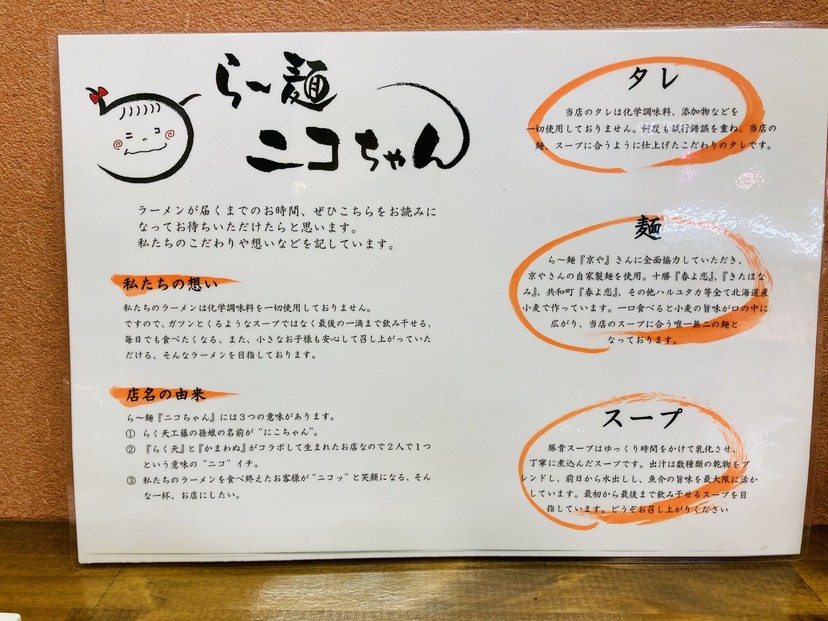 ら〜麺
ニコちゃん
ラーメンが届くまでのお時間、ぜひこちらをお読みに
なってお待ちいただけたらと思います。
私たちのこだわりや想いなどを記しています。
私たちの想い
私たちのラーメンは化学調味料を一切使用しておりません。
ですので、ガツンとくるようなスープではなく最後の一滴まで飲み干せる、
毎日でも食べたくなる、また、小さなお子様も安心して召し上がっていた
だける、そんなラーメンを目指しております。
店名の由来
ら〜麺『ニコちゃん』には3つの意味があります。
① らく天工藤の孫娘の名前が“にこちゃん”。
② 『らく天』と『かまわぬ』がコラボして生まれたお店なので2人で1つ
という意味の“ニコ”イチ。
③ 私たちのラーメンを食べ終えたお客様が“ニコッ”と笑顔になる、そん
な一杯、お店にしたい。
タレ
当店のタレは化学調味料、添加物などを
一切使用しておりません。何度も試行錯誤を重ね、当店の
麺、スープに合うように仕上げたこだわりのタレです。
麺
ら〜麺『京や』さんに全面協力していただき、
京やさんの自家製麺を使用。十勝『春よ恋』、『きたほな
み』、共和町『春よ恋』、その他ハルユタカ等全て北海道産
小麦で作っています。一口食べると小麦の旨味が口の中に
広がり、当店のスープに合う唯一無二の麺と
なっております。
スープ
豚骨スープはゆっくり時間をかけて乳化させ、
丁寧に煮込んだスープです。出汁は数種類の乾物をブ
レンドし、前日から水出しし、魚介の旨味を最大限に活か
しています。最初から最後まで飲み干せるスープを目
指しています。どうぞお召し上がりください